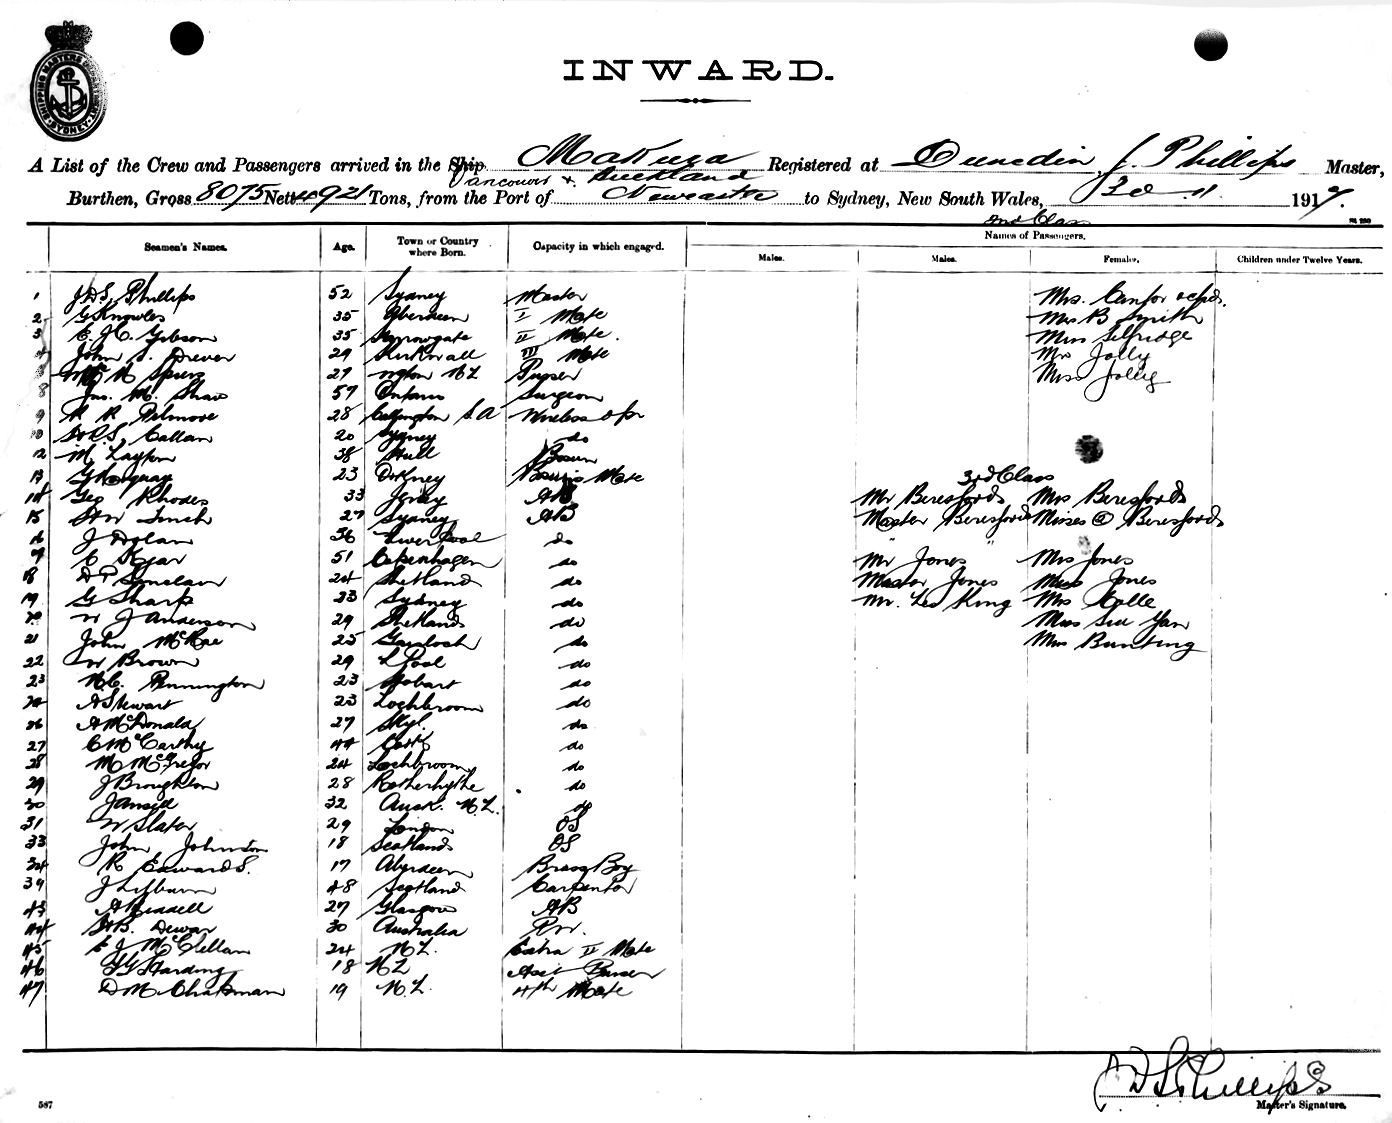 SHIPPING MASTERS DEPARTMENT SYDNEY
INWARD.
A List of the Crew and Passengers arrived in the Ship Makura Registered at Dunedin, J. Phillips Master,
Vancouver & Auckland
Burthen, Gross 8075 Nett 4921 Tons, from the Port of Newcastle to Sydney, New South Wales, 30 11 191
2nd Class
Seamen's Names. Age. Town or Country where Born. Capacity in which engaged. Names of Passengers.
Males. Males. Females. Children under Twelve Years.
1 J.D.S. Phillips 52 Sydney Master Mrs.
2 G Knowles 35 Aberdeen I Mate Mrs B Smith
3 C. J.C. Gibson 35 II Mate. Miss Selfridge
4 John S. Drever 29 Kirkwall III Mate Mrs Jolly
Spiers 27 N Z Purser Miss Jolly
8 Jas. M. Shaw 57 Ontario Surgeon
9 R R Pilmore 28 S.A Wireless Opr
10 Callam 20 Sydney do
12 M. Layton 38 Hull Bosun
13 23 Orkney Bosun's Mate
3rd Class
14 Geo Rhodes 33 Jersey AB Mr Beresford Mrs Beresford
15 27 Sydney AB Master Beresford Misses Beresford
16 J Dolan 36 Liverpool do
C Kjar 51 Copenhagen do Mr Jones Mrs Jones
18 Sinclair 24 Shetland do Master Jones Miss Jones
19 G Sharp 23 Sydney do Mr. Leo King Mrs Kolle
W J Anderson 29 Shetlands do Miss Sue Yan
21 John McRae 25 Gairloch do Miss Bunting
22 W Brown 29 L'Pool do
23 N.C. Pennington 23 Hobart do
24 A Stewart 23 Lochbroom do
26 A McDonald 27 do
27 C McCarthy 44 Cork do
28 M McGregor 24 Lochbroom do
29 J Broughton 28 Rotherhythe do
30 J Ansell 32 Auck. N.Z. do
31 W Slater 29 London OS
33 John Johnston 18 Scotland OS
34 R Edwards. 17 Aberdeen Brass Boy
39 J Lilburn 48 Scotland Carpenter
43 A Riddell 27 Glasgow AB
44 Dewar 30 Australia
45 J McClellan 24 N.Z. Extra II Mate
46 Harding 18 N Z Asst Purser
47 D M Chapman 19 N.Z. 4th Mate
J D S Phillips
587 Master's Signature.